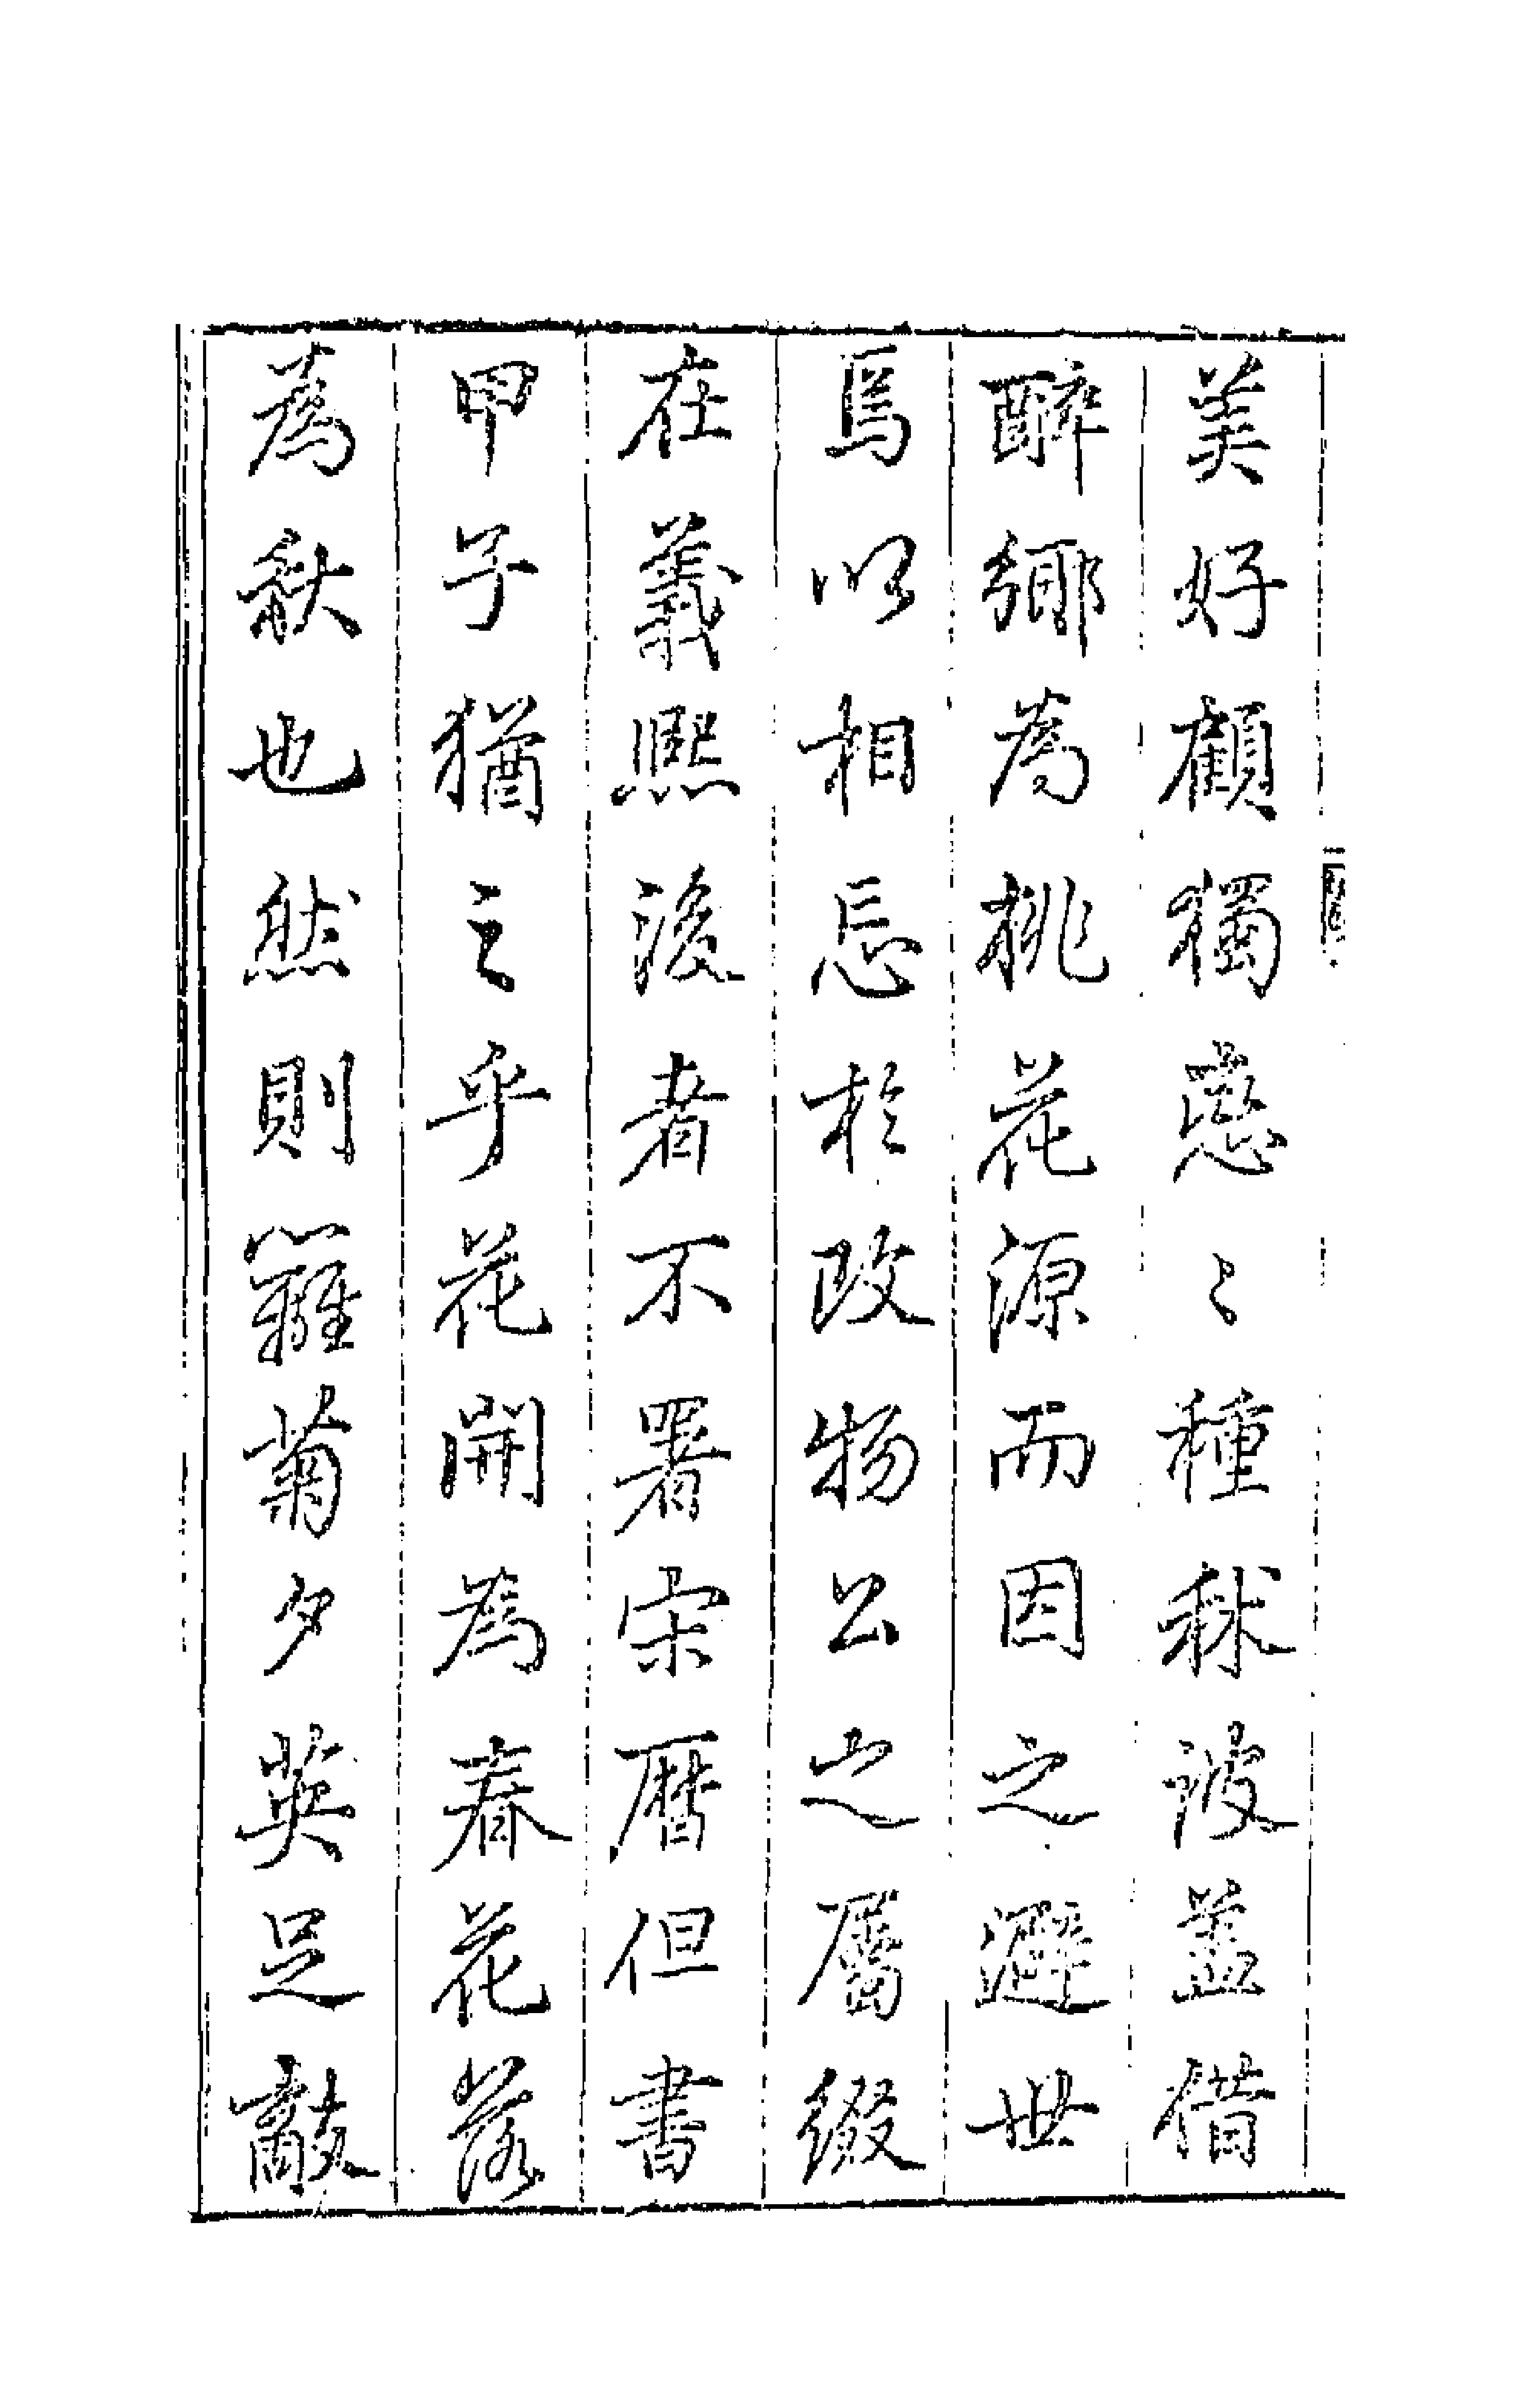 美好顧獨戀〻種秫彼蓋借
醉鄉為桃花源而因之避世
焉以相忘於改物公之屬綴
在義熙後者不署宋曆但書
甲子猶之乎花開為春花落
為秋也然則籬菊夕英足敵